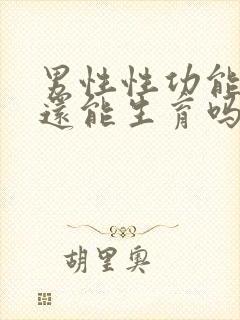 男性性功能
還能生育吗
胡里奥